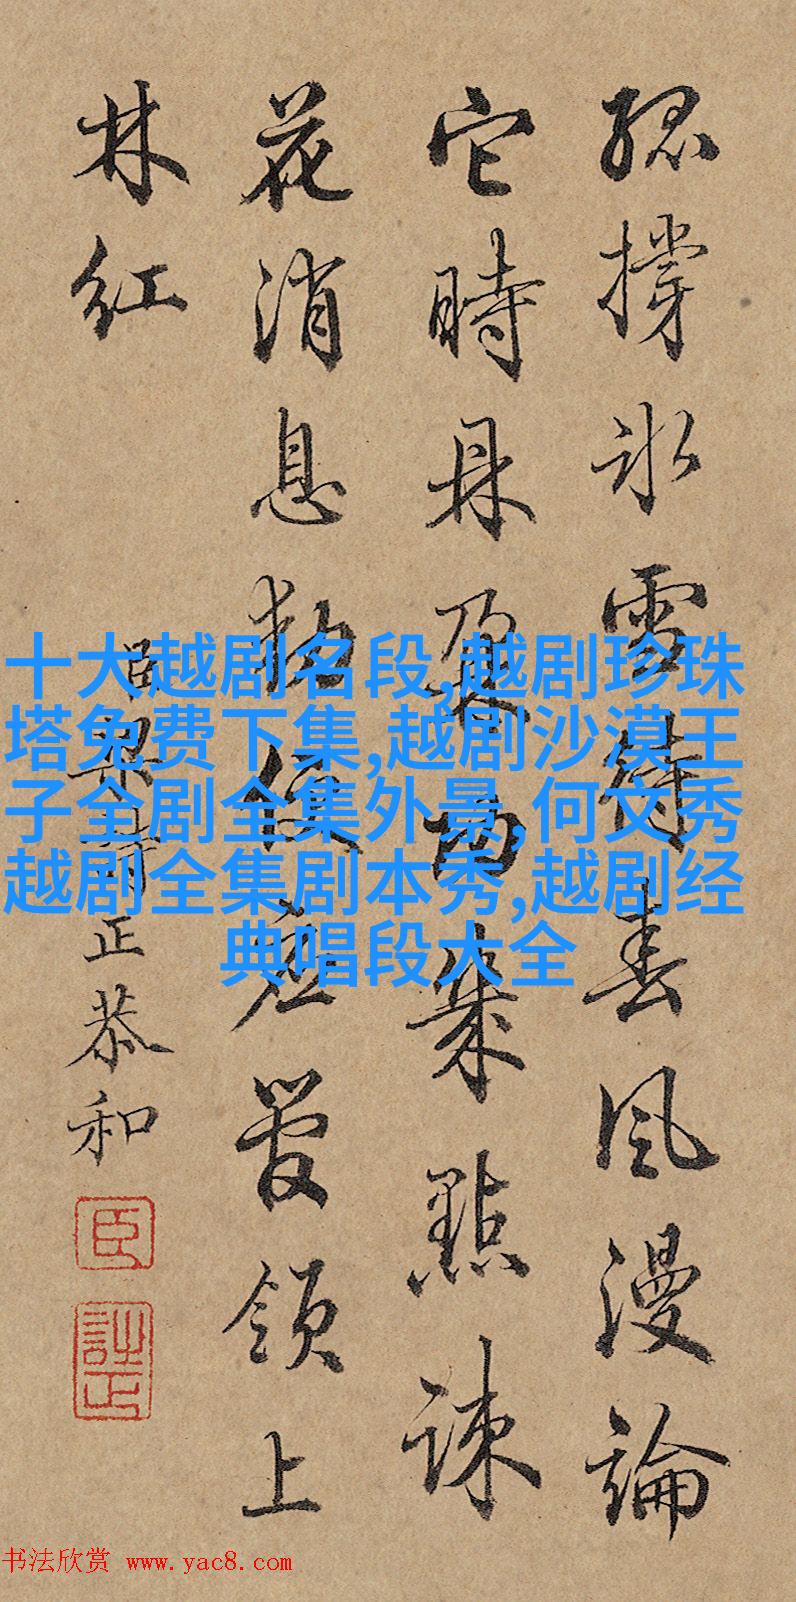 孤撐冰雪待春風漫論
它時點疎
花消息動便應管領上
林紅
臣梁詩正恭和
臣
詩正
十大越剧名段,越剧珍珠
塔免费下集,越剧沙漠王
子全剧全集外景,何文秀
越剧全集剧本秀,越剧经
典唱段大全
书法欣赏 www.yac8.com